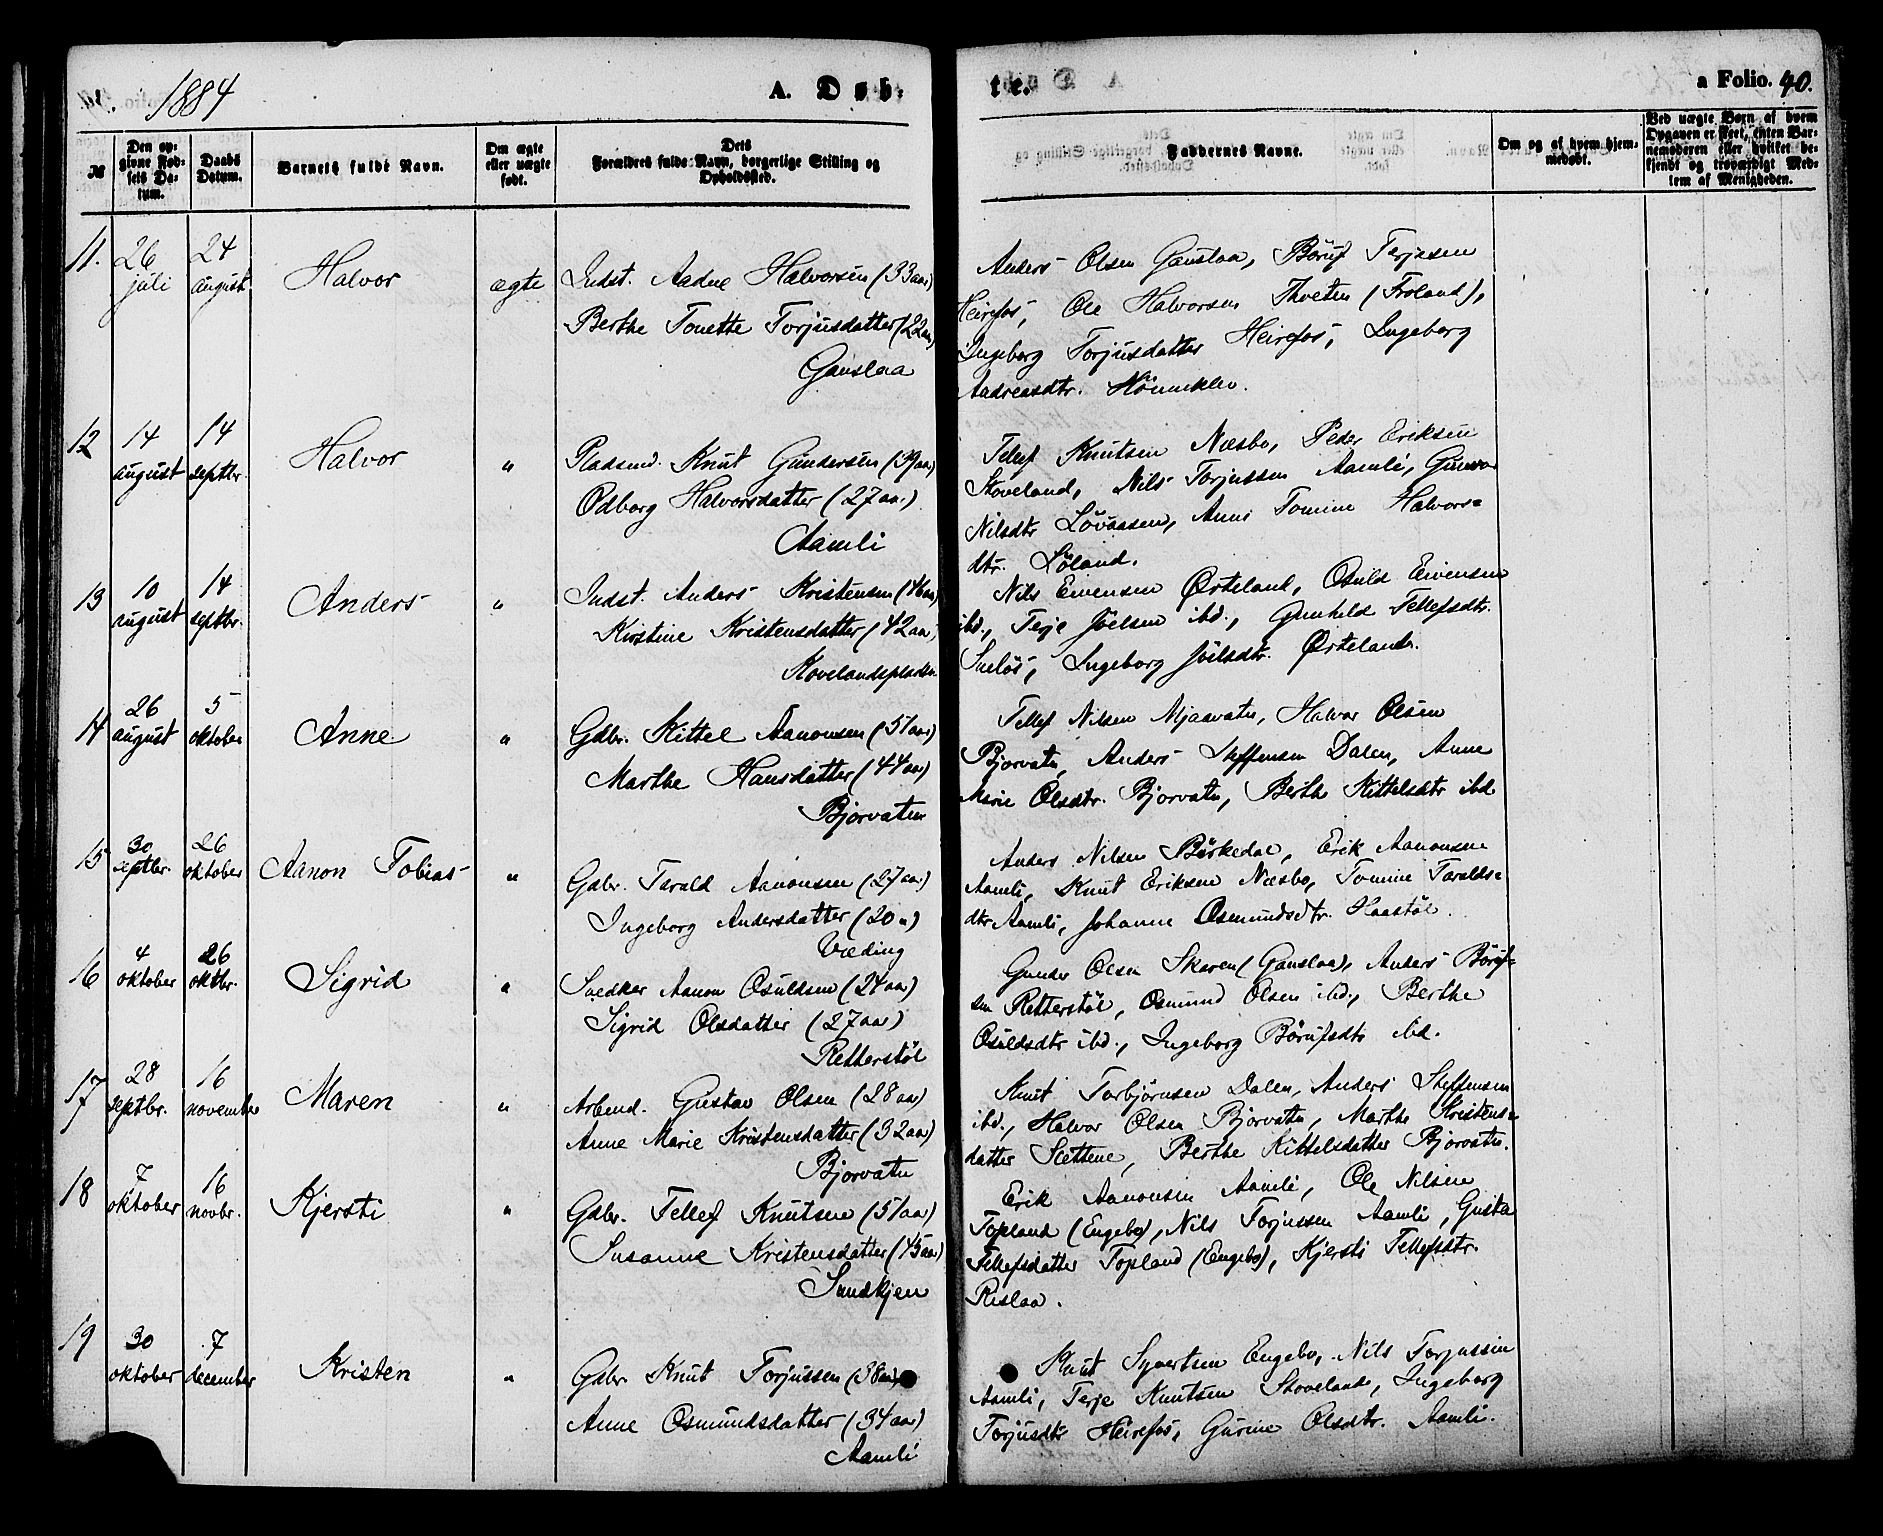 1884
A. Døb-
te.
a Folio. 40.
№
Den op-
givne Fød-
sels Da-
tum.
Daabs
Datum.
Barnets fulde Navn.
Om ægte
eller uægte
født.
Dets
Forældres fulde Navn, borgerlige Stilling og
Opholdssted.
Faddernes Navne.
Om og af hvem hjem-
medøbt.
Ved uægte Børn af hvem
Opgaven er skeet, enten Bar-
nemoderen eller hvilket be-
kjendt og troværdigt Med-
lem af Menigheden.
11.
26
juli
24
august
Halvor
ægte
Indst. Aadne Halvorsen (33 aar)
Berthe Tonette Torjusdatter (22 aar)
Gauslaa
Anders Olsen Gauslaa, Børuf Terjesen
Heirefos, Ole Halvorsen Thveten (Froland),
Ingeborg Torjusdatter Heirefos, Ingeborg
Andreasdtr. Hønneklev.
12
14
august
14
septbr.
Halvor
"
Pladsmd. Knut Gundersen (39 aar)
Odborg Halvorsdatter (27 aa.)
Aamli
Tellef Knutsen Næsbø, Peder Eriksen
Stoveland, Nils Torjussen Aamli, Gunvor
Nilsdtr Løvaasen, Anne Tomine Halvors=
dtr. Løland.
13
10
august
14
septbr.
Anders
"
Indst. Anders Kristensen (46 aa)
Kirstine Kristensdatter (42 aar)
Hovelandspladsen
Nils Eivensen Ørteland, Osuld Eivensen
ibd., Terje Joelsen ibd., Gunhild Tellefsdtr.
Sneløs, Ingeborg Joelsdtr. Ørteland.
14
26
august
5
oktober
Anne
"
Gdbr. Kittel Aanonsen (51 aar)
Marthe Hansdatter (44 aar)
Bjorvatn
Tellef Nilsen Mjaavatn, Halvor Olsen
Bjorvatn, Anders Steffensen Dalen, Anne
Marie Olsdtr. Bjorvatn, Berthe Kittelsdtr ibd
15
30
septbr.
26
oktober
Aanon Tobias
"
Gdbr. Tarald Aanonsen (27 aar)
Ingeborg Andersdatter (20 ")
Væding
Anders Nilsen Birkedal, Erik Aanonsen
Aamli, Knut Eriksen Næsbø, Tomine Taralds=
dtr Aamli, Johanne Osmundsdtr. Haastøl.
16
4
oktober
26
oktbr.
Sigrid
"
Snedker Aanon Osuldsen (24 aar)
Sigrid Olsdatter (27 aar)
Retterstøl
Gunder Olsen Skaren (Gauslaa), Anders Børuf=
sen Retterstøl, Osmund Olsen ibd., Berthe
Osuldsdtr ibd., Ingeborg Børufsdtr ibd.
17
28
septbr.
16
november
Maren
"
Arbmd. Gustav Olsen (28 aar)
Anne Marie Kristensdatter (32 aar)
Bjorvatn
Knut Torbjørnsen Dalen, Anders Steffensen
ibd., Halvor Olsen Bjorvatn, Marthe Kristens=
datter Slettene, Berthe Kittelsdatter Bjorvatn.
18
7
oktober
16
novbr.
Kjersti
"
Gdbr. Tellef Knutsen (51 aar)
Susanne Kristensdatter (45 aar)
Sundkjen
Erik Aanonsen Aamli, Ole Nilsen
Topland (Engebø), Nils Torjussen Aamli, Gusta
Tellefsdatter Topland (Engebø), Kjersti Tellefsdtr.
Rislaa.
19
30
oktober
7
december
Kristen
"
Gdbr Knut Torjussen (38 aar)
Anne Osmundsdatter (34 aar)
Aamli
Knut Syvertsen Engebø, Nils Torjussen
Aamli, Terje Knutsen Stoveland, Ingeborg
Torjusdtr Heirefos, Gurine Olsdtr. Aamli.